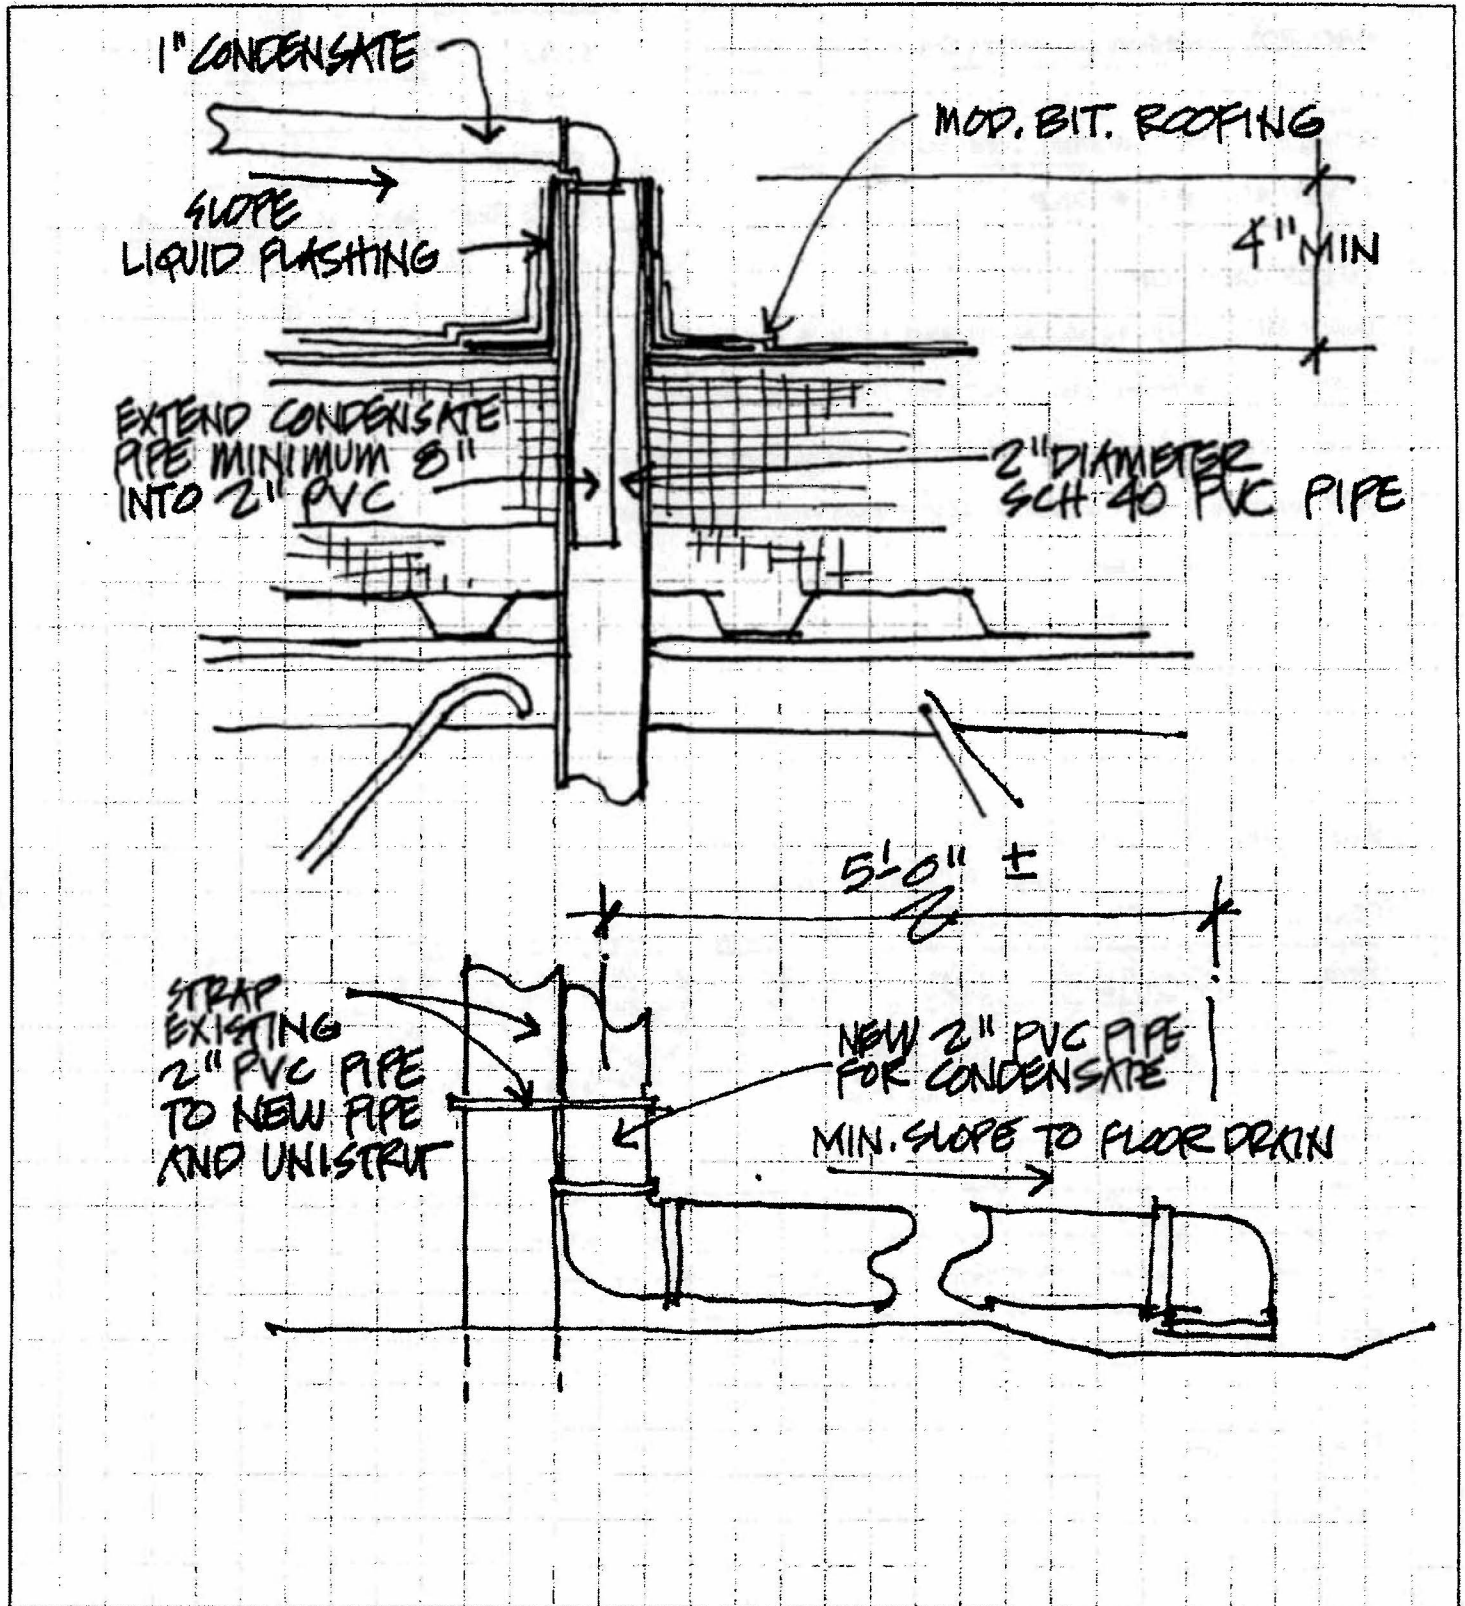 1" CONDENSATE
MOD. BIT. ROOFING
SLOPE
LIQUID FLASHING
4" MIN
EXTEND CONDENSATE
PIPE MINIMUM 8"
INTO 2" PVC
2" DIAMETER
SCH 40 PVC PIPE
5'-0" ±
STRAP
EXISTING
2" PVC PIPE
TO NEW PIPE
AND UNISTRUT
NEW 2" PVC PIPE
FOR CONDENSATE
MIN. SLOPE TO FLOOR DRAIN